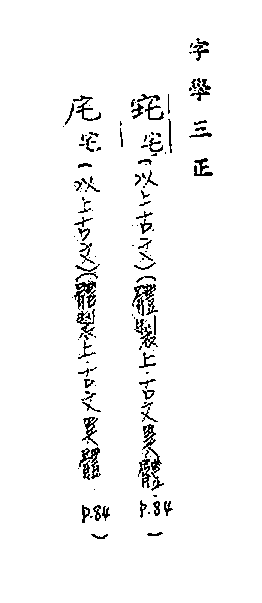 字學三正
𡧪宅(以上古文)(體製上·古文異體 P.84)
㡯宅(以上古文)(體製上·古文異體 P.84)